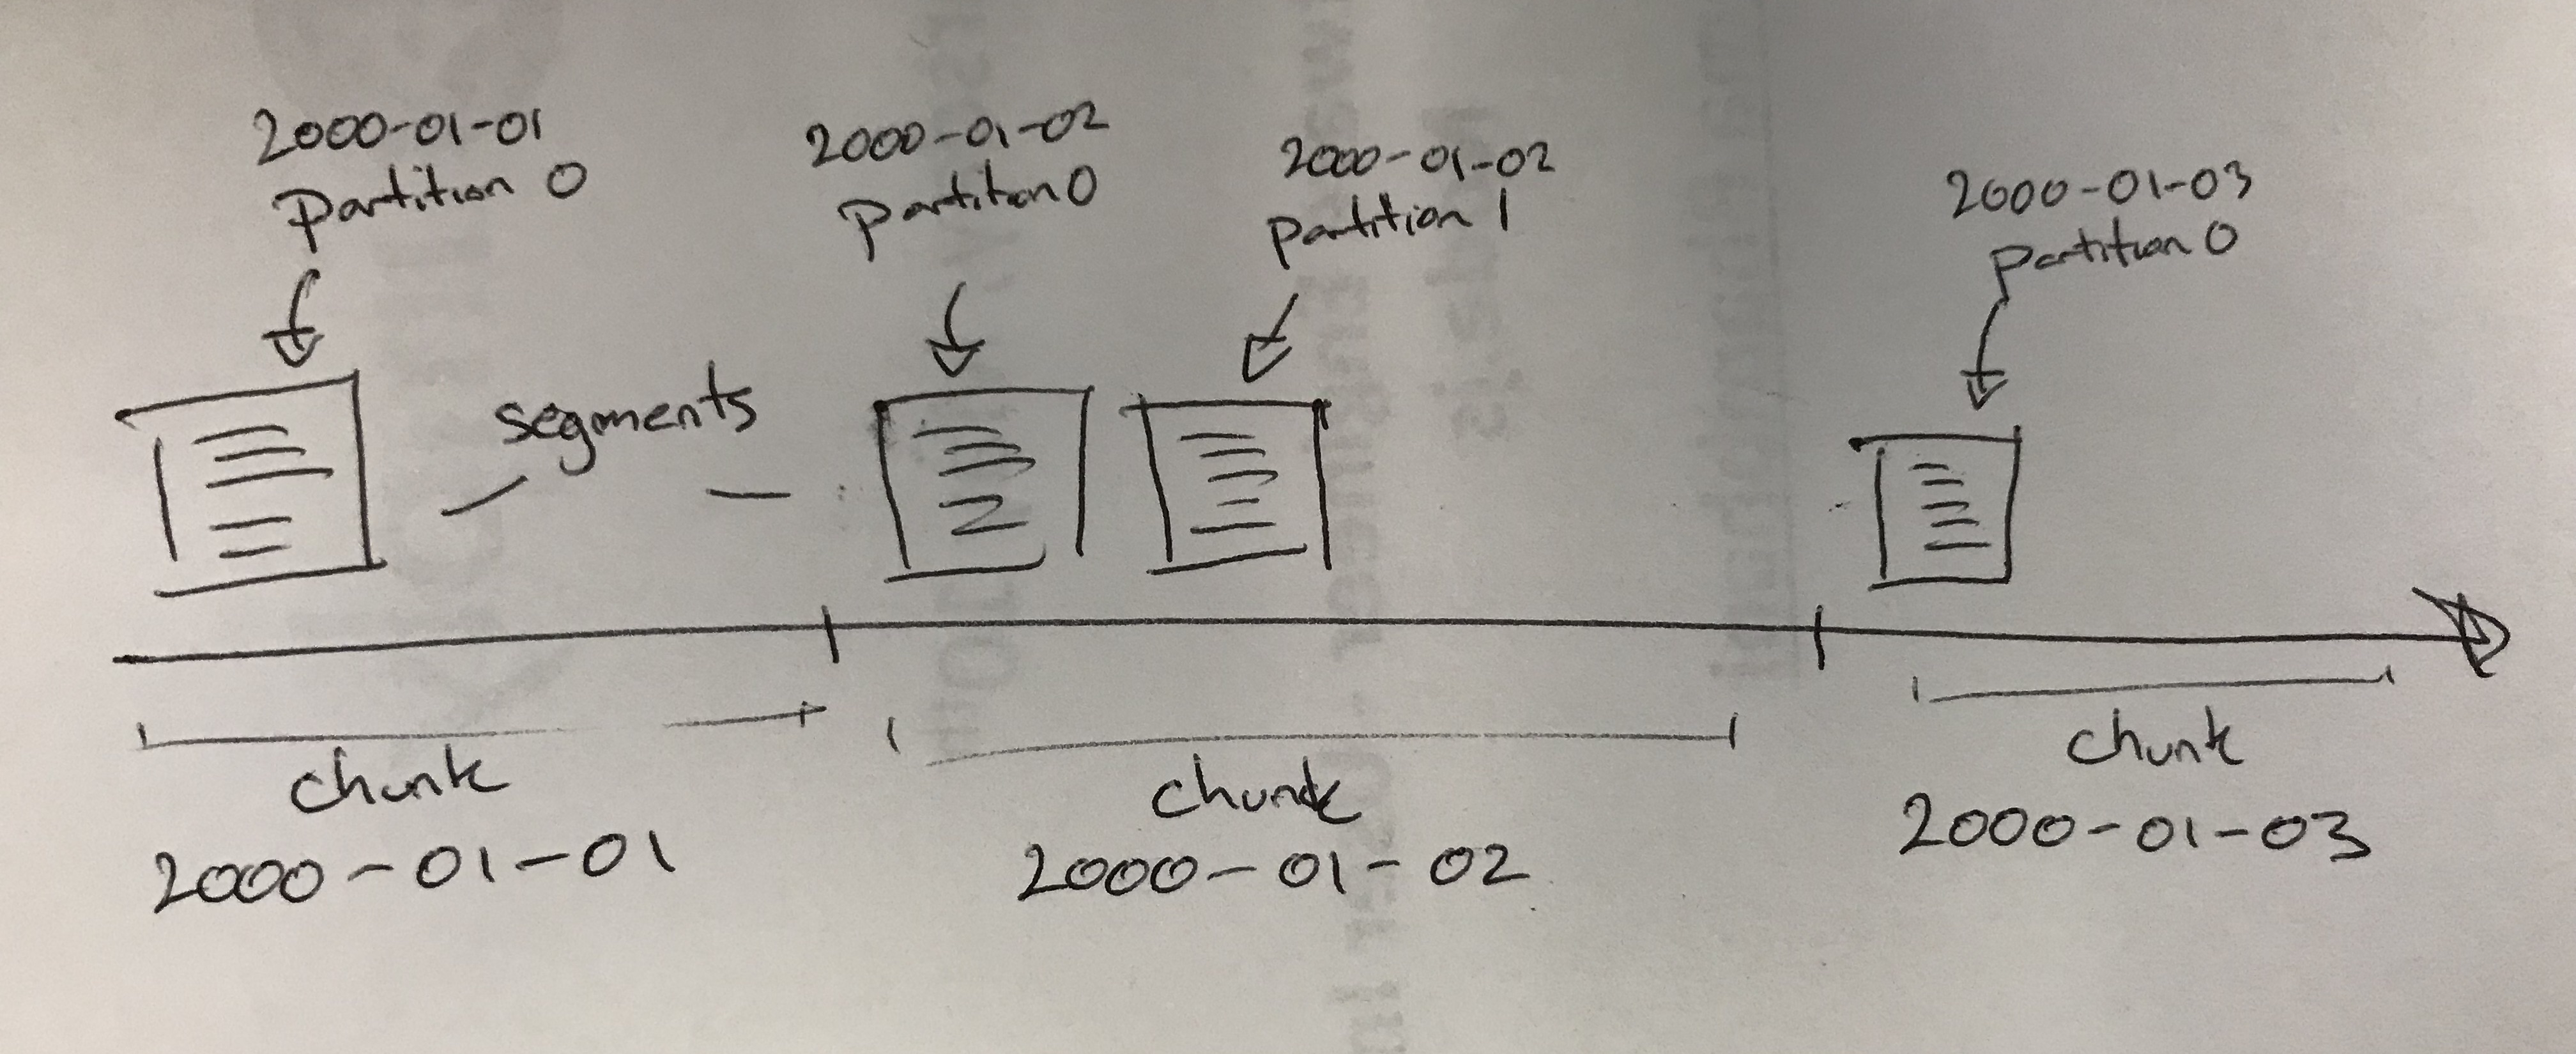 2000-01-01
Partition 0
2000-01-02
Partition 0
2000-01-02
Partition 1
2000-01-03
Partition 0
segments
chunk
2000-01-01
chunk
2000-01-02
chunk
2000-01-03